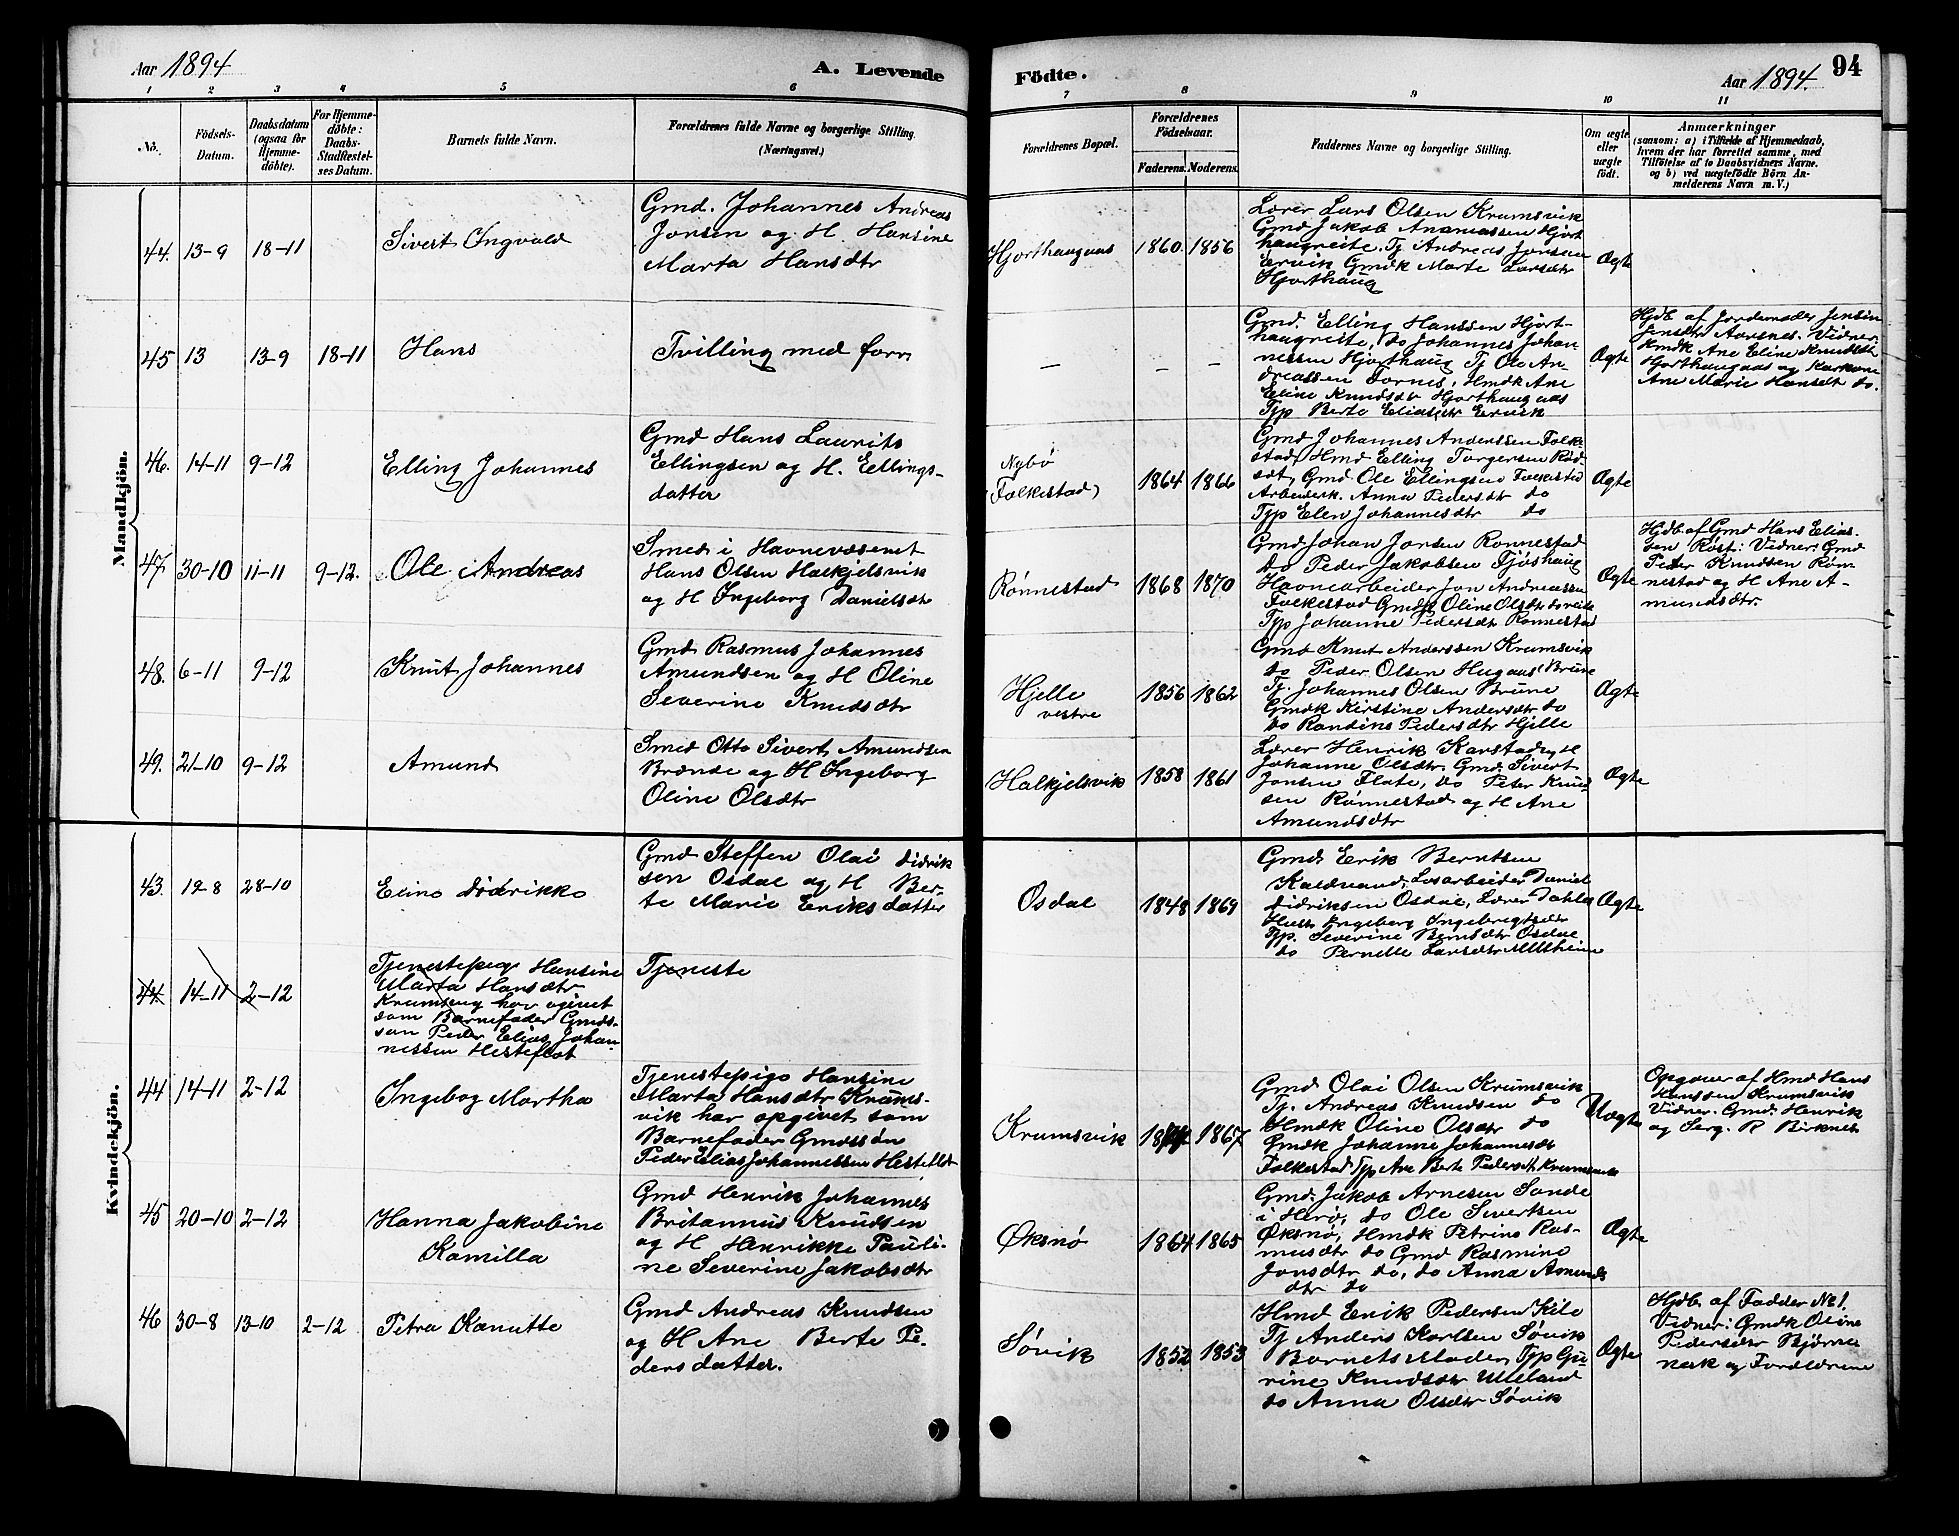 Aar 1894
A. Levende
Födte.
Aar 1894.
94
1 2 3 4 5 6 7 8 9 10 11
No.
Födsels-
Datum.
Daabsdatum
(ogsaa for
Hjemme-
döbte).
For Hjemme-
döbte:
Daabs-
Stadfæstel-
ses Datum.
Barnets fulde Navn.
Forældrenes fulde Navne og borgerlige Stilling.
(Næringsvei.)
Forældrenes Bopæl.
Forældrenes
Födselsaar.
Faderens. Moderens.
Faddernes Navne og borgerlige Stilling.
Om ægte
eller
uægte
födt.
Anmærkninger
(saasom: a) i Tilfælde af Hjemmedaab,
hvem der har forrettet samme, med
Tilföielse af to Daabsvidners Navne.
og b) ved uægtefödte Börn An-
melderens Navn m. V.)
Mandkjön.
44. 13-9 18-11
Sivert Ingvald
Gmd. Johannes Andreas
Jonsen og H. Hansine
Marta Hansdtr
Hjorthaugaas
1860 1856
Lærer Lars Olsen Krumsvik
Gmd Jakob Hjort
haugreite. Tj. Andreas Jonsen
Ervik Gmdk Marte Larsdtr
Hjorthaug
Ægte
45 13 13-9 18-11
Hans
Tvilling med forr
— — —
Gmd. Elling Hanssen Hjort-
haugreite, do Johannes Johan
nessen Hjorthaug Tj Ole An-
dreassen Fornes, Hmdk Ane
Eline Knudsdtr Hjorthaugaas
Typ Berte Eliasdtr Ervik
Ægte
Hjdb. af Jordemoder Jensin
Jensdtr Aarsnes. Vidner:
Hmdk Ane Eline Knudsdt
Hjorthaugaas og
Ane Marie Hansdt do.
46. 14-11 9-12
Elling Johannes
Gmd Hans Laurits
Ellingsen og H. Ellings-
datter
Nybö
(Folkestad)
1864 1866
Gmd Johannes Anderssen Folke
stad Hmd Elling Torgersen Röd
set, Gmd Ole Ellingsen Folkestad
Arbeiderk. Anna Pedersdtr do
Typ Elen Johannesdtr do
Ægte
47 30-10 11-11 9-12.
Ole Andreas
Smed i Havnevæsenet
Hans Olsen Halkjelsvik
og H Ingeborg Danielsdtr
Rönnestad
1868 1870
Gmd Johan Jonsen Ronnestad
do Peder Jakobsen Fjöshaug
Havnearbeider Jon Andreassen
Folkestad Gmdk Oline Olsdtr
Typ Johanne Pedersdtr Ronnestad
Ægte
Hjdb. af Gmd Hans Elias-
sen Röst: Vidner: Gmd
Peder Knudsen Rön
nestad og H Ane A-
mundsdtr.
48. 6-11 9-12
Knut Johannes
Gmd Rasmus Johannes
Amundsen og H Oline
Severine Knudsdtr
Hjelle
vestre
1856 1862
Gmd Knut Anderssen Krumsvik
do Peder Olsen Brune
Tj. Johannes Olsen Brune
Gmdk Kirstine Andersdtr do
do Randine Pedersdtr Hjelle
Ægte
49. 21-10 9-12
Amund
Smed Otto Sivert Amundsen
Brende og H Ingeborg
Oline Olsdtr
Halkjelsvik
1858 1861
Lærer Henrik Karstad og H
Johanne Olsdtr. Gmd Sivert
Jonsen Flate, do Peter Knud
sen Rönnestad og H Ane
Amundsdtr
Ægte
Kvindekjön.
43. 12-8 28-10
Eline Didrikke
Gmd Steffen Olai Didrik
sen Osdal og H Ber-
te Marie Eriksdatter
Osdal
1848 1869
Gmd Erik Berntsen
Kaldvand, Losarbeider Daniel
Didriksen Osdal, Lærer Dahles
Hustr Ingeborg Ingebrigtsdtr
Typ. Severine Berntsdtr Osdal
do Pernelle Larsdtr
Ægte
44 14-11 2-12
Tjenestepige Hansine
Marta Hansdtr
har opgivet
som Barnefader Gmds-
søn Peder Elias Johan-
nessen Hesteflot
Tjeneste
44 14-11 2-12
Ingebog Martha
Tjenestepige Hansine
Marta Hansdtr Krums-
vik har opgivet som
Barnefader Gmdssön
Peder Elias Johannessen Hesteflot
Krumsvik
1867
Gmd Olai Olsen Krumsvik
Tj. Andreas Knudsen do
Hmdk Oline Olsdtr do
Gmdk Johanne Johannesdt
Folkestad Typ Ane Berte Pedersdt Krumsvik
Uægte
Opgaver af Hmd Hans
Hanssen Krumsvik
Vidner. Gmd. Henrik
og Serg. R Birknes
45 20-10 2-12
Hanna Jakobine
Kamilla
Gmd Henrik Johannes
Britannus Knudsen
og H Henrikke Pauli-
ne Severine Jakobsdtr
Øksnö
1864 1865
Gmd. Jakob Arnesen Sande
i Herö, do Ole Sivertsen
Øksnö, Hmdk Petrine Ras-
musdtr do Gmd Rasmine
Jonsdtr do, do Anna Amunds
dtr do
Ægte
46 30-8 13-10 2-12
Petra Kanutte
Gmd Andreas Knudsen
og H Ane Berte Pe-
dersdatter.
Sövik
1852 1853
Hmd Erik Pedersen Kile
Tj Anders Karlsen Sövik
Barnets Moder, Typ Gu-
rine Knudsdtr Ulleland
do Anna Olsdtr Sövik
Ægte
Hjdb. af Fadder No 1.
Vidner: Gmdk Oline
Pedersdtr Björne
nask og Forældrene